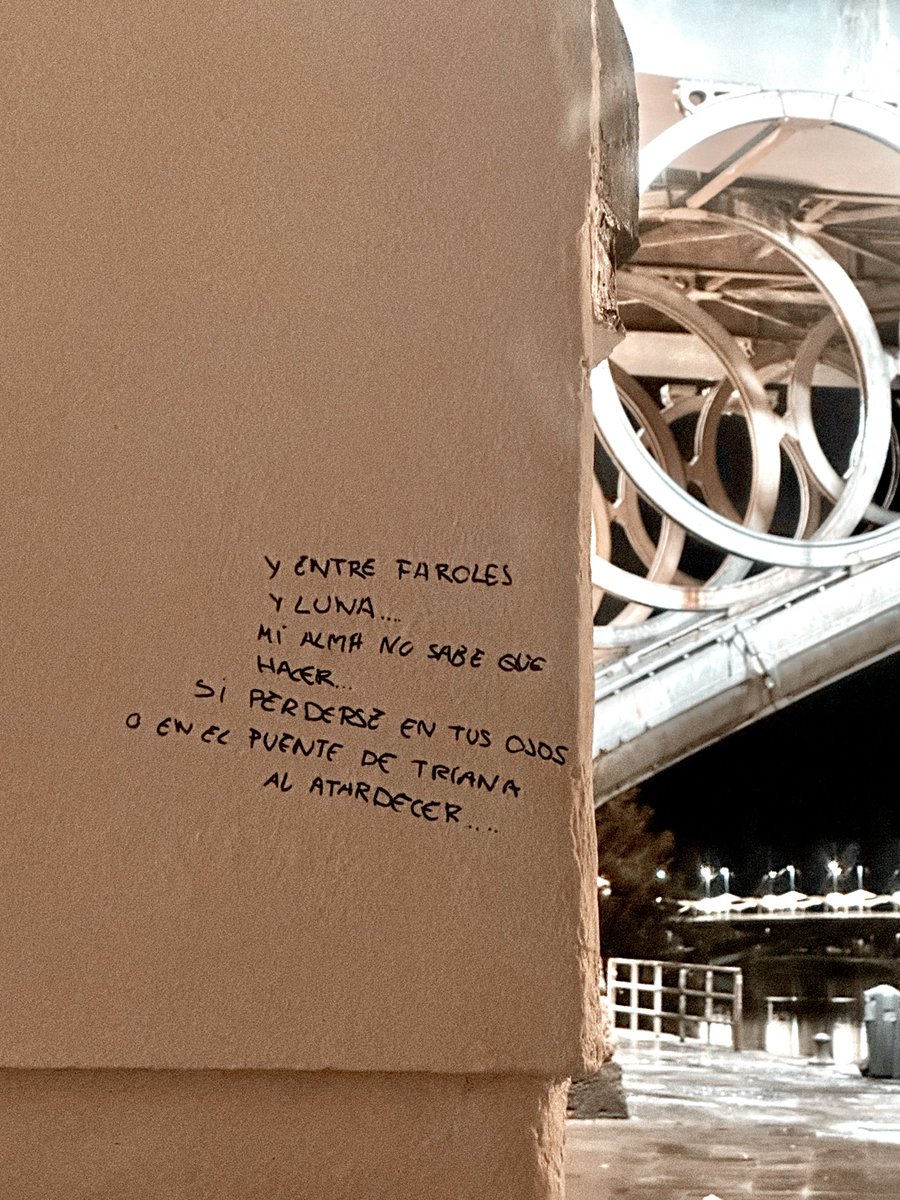 Y ENTRE FAROLES
Y LUNA....
MI ALMA NO SABE QUE
HACER...
SI PERDERSE EN TUS OJOS
O EN EL PUENTE DE TRIANA
AL ATARDECER....